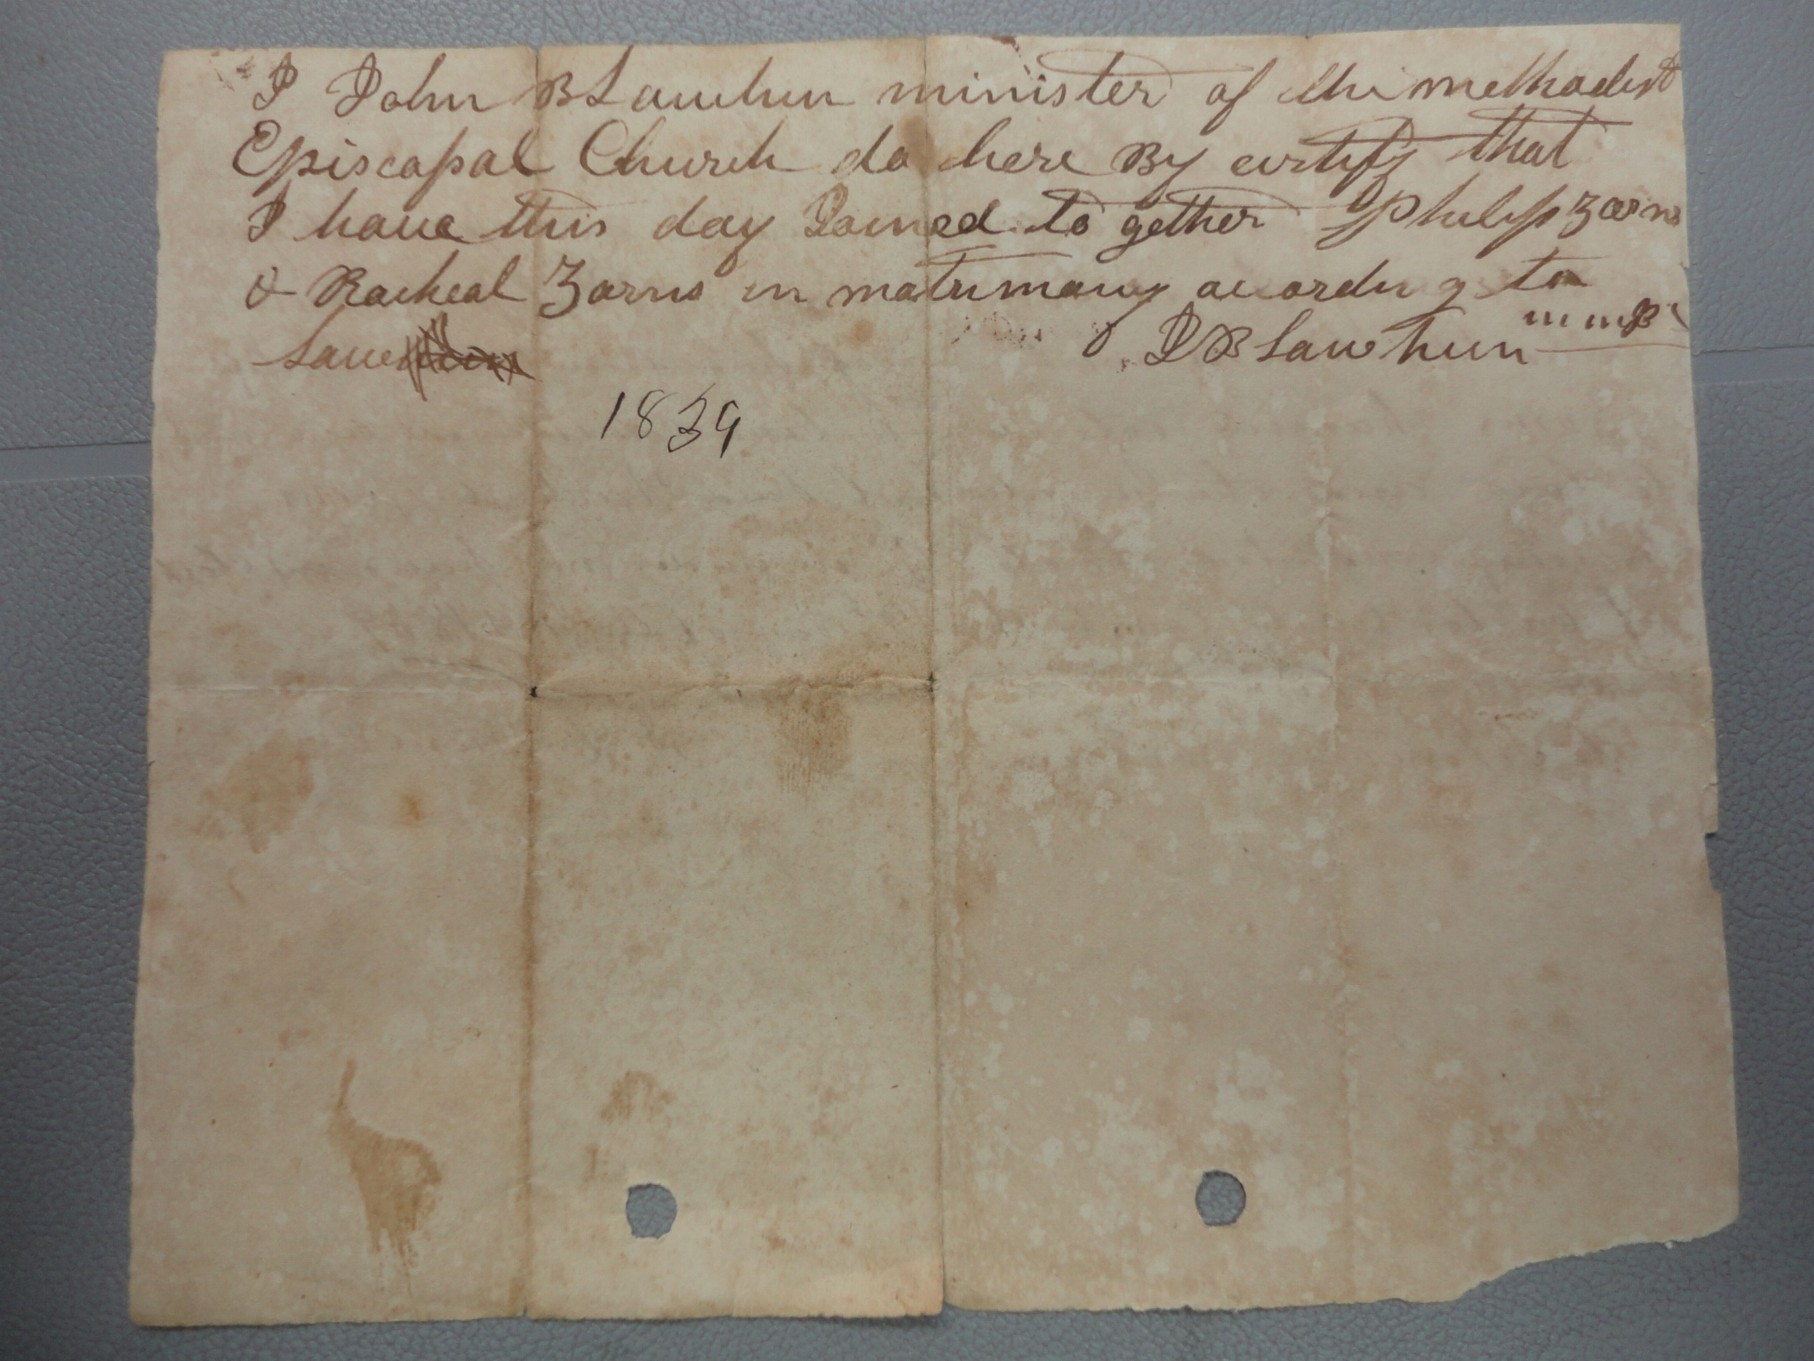 I John B Lawhun minister of the methodist
Episcopal Church do here By certify that
I have this day Joined to gether Philip Zarns
& Racheal Zarns in matrimony acording to
Law
J B Lawhun
1839